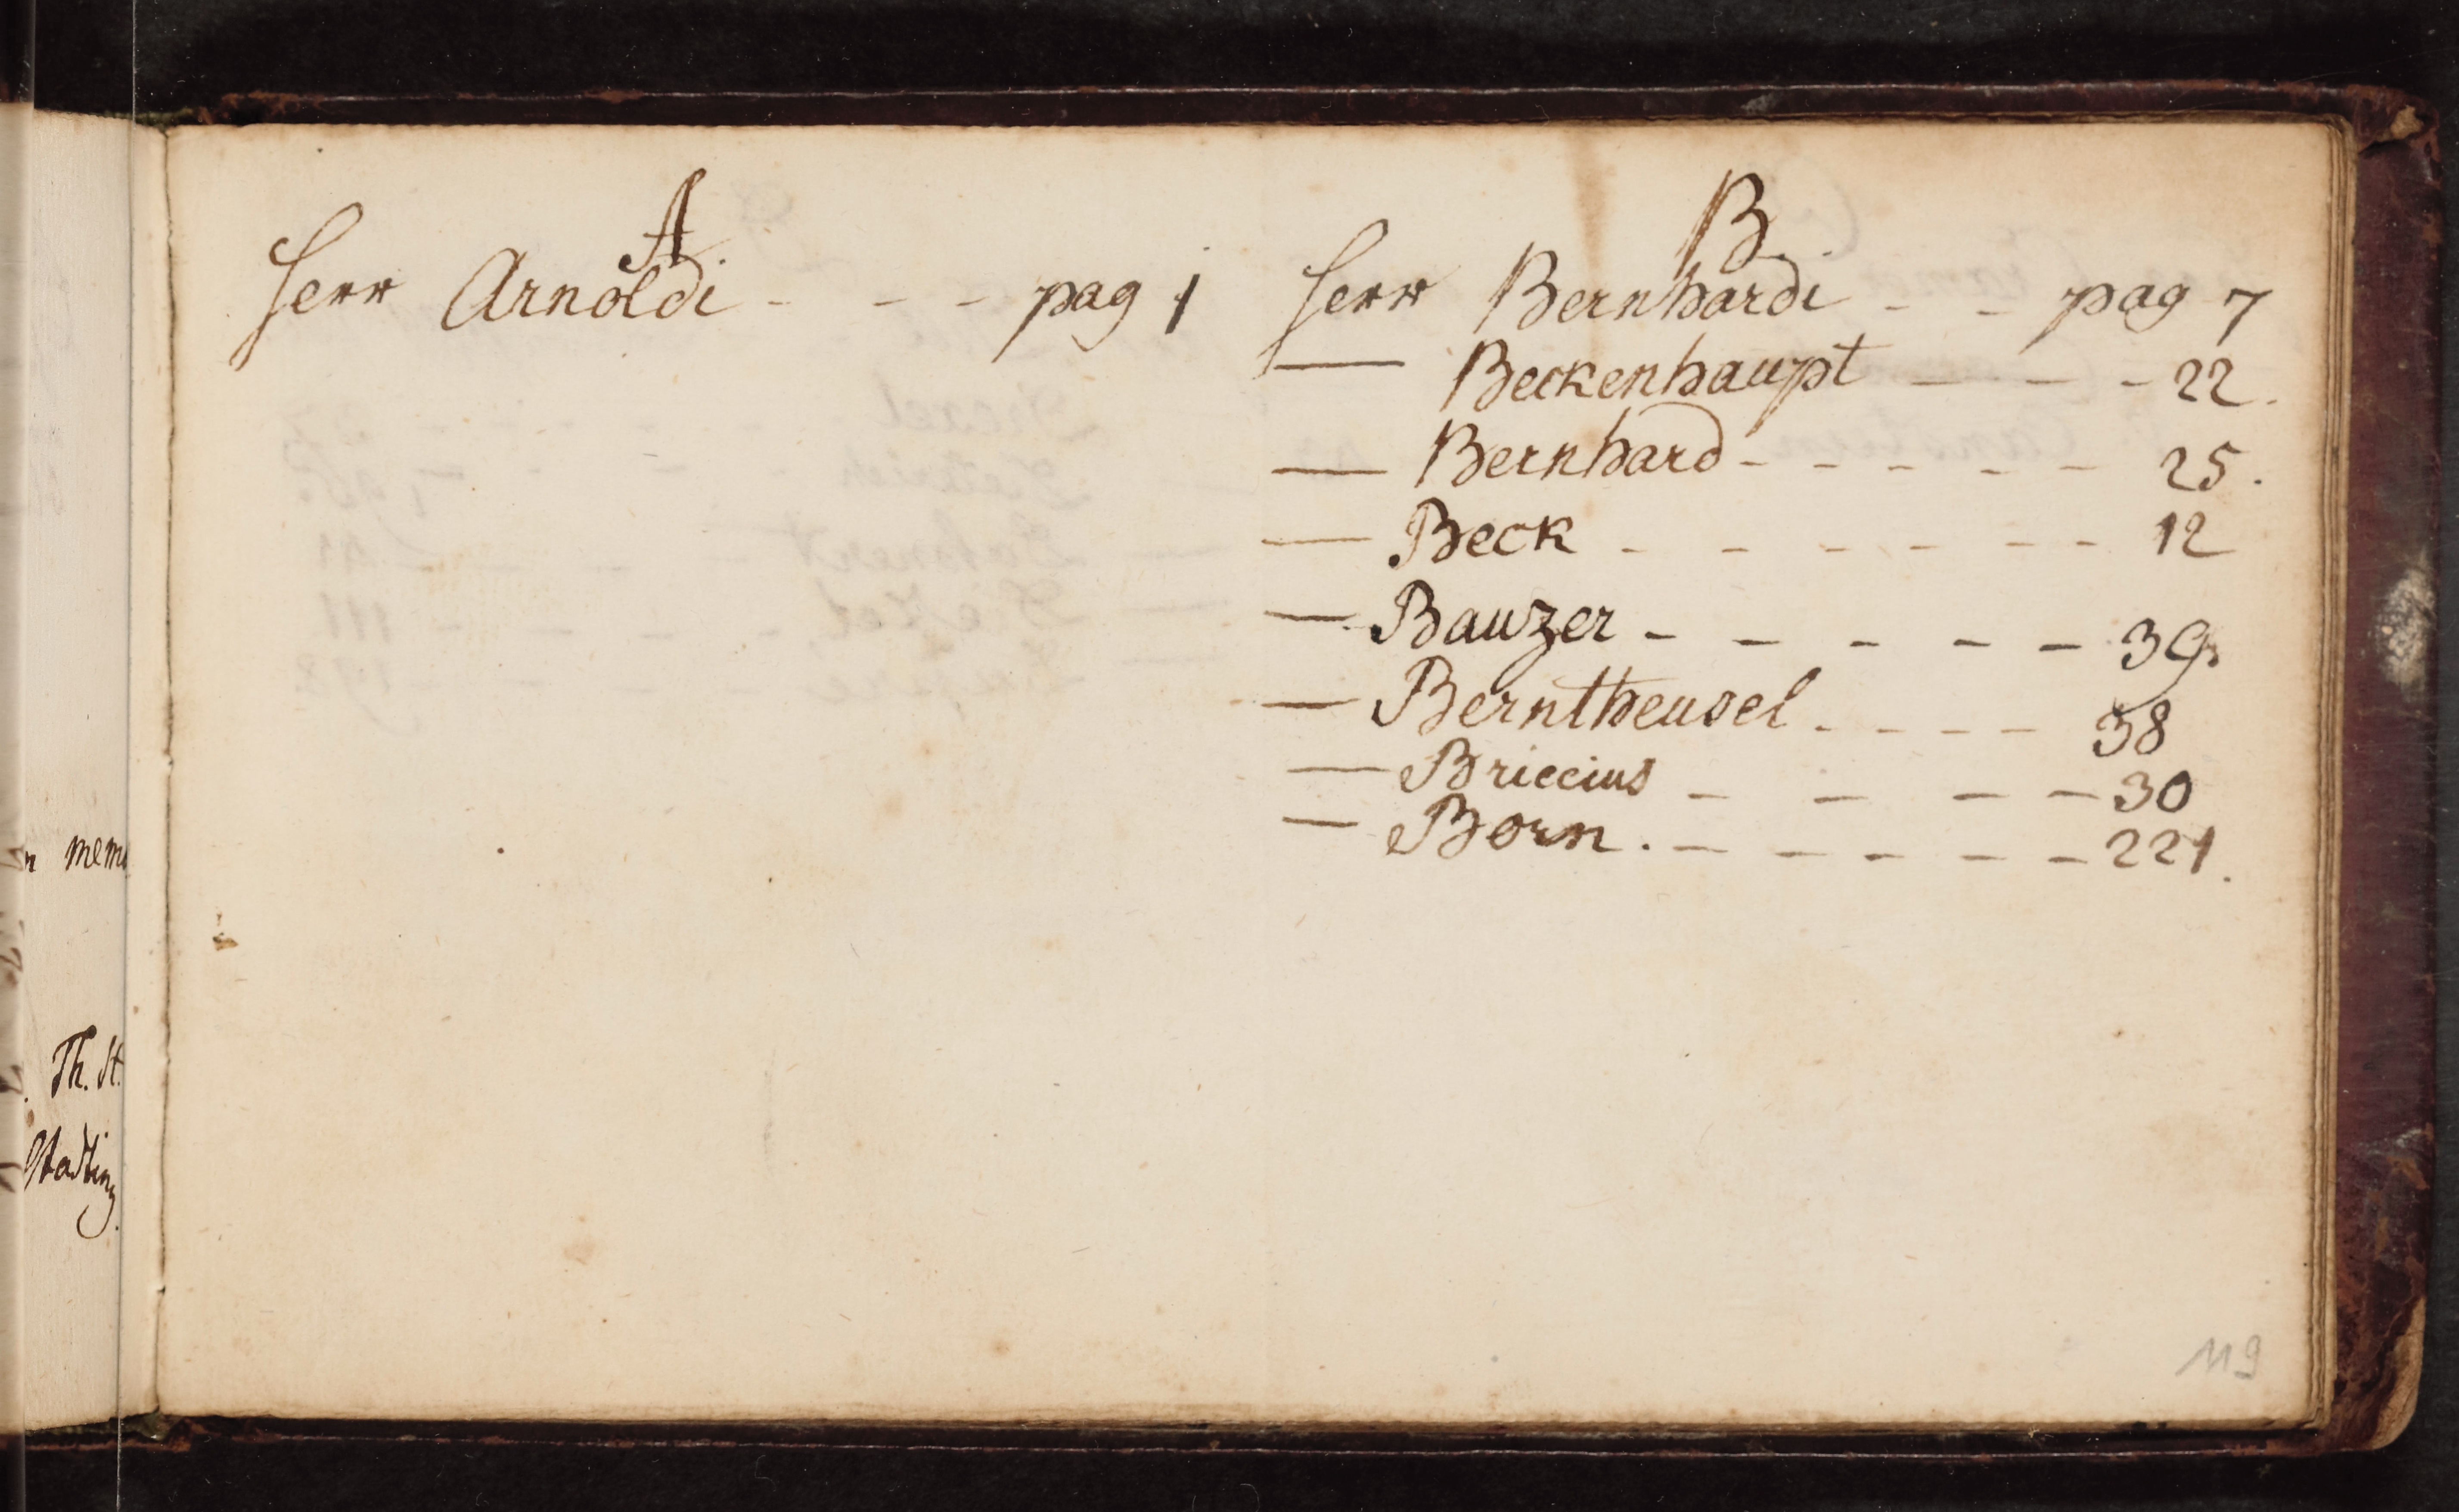 A
Herr Arnoldi - - - pag 1
B.
Herr Bernhardi - - pag 7
— Beckenhaupt - - - 22.
— Bernhard - - - - - - 25.
— Beck - - - - - - - 12
— Bauzer - - - - - 39.
— Berntheusel - - - - 38
— Briccius - - - - 30
— Born. - - - - - 221.
119
Th. St.